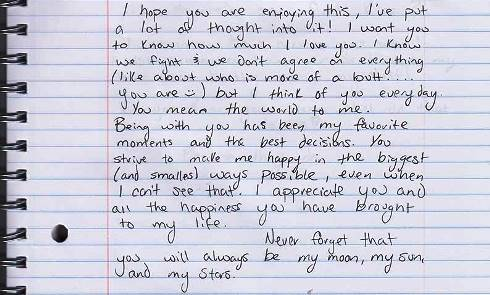 I hope you are enjoying this, I've put
a lot of thought into it! I want you
to know how much I love you. I know
we fight & we don't agree on everything
(like about who is more of a butt....
you are :)) but I think of you everyday.
You mean the world to me.
Being with you has been my favorite
moments and the best decisions. You
strive to make me happy in the biggest
(and smallest) ways possible, even when
I can't see that. I appreciate you and
all the happiness you have brought
to my life.
Never forget that
you will always be my moon, my sun,
and my stars.